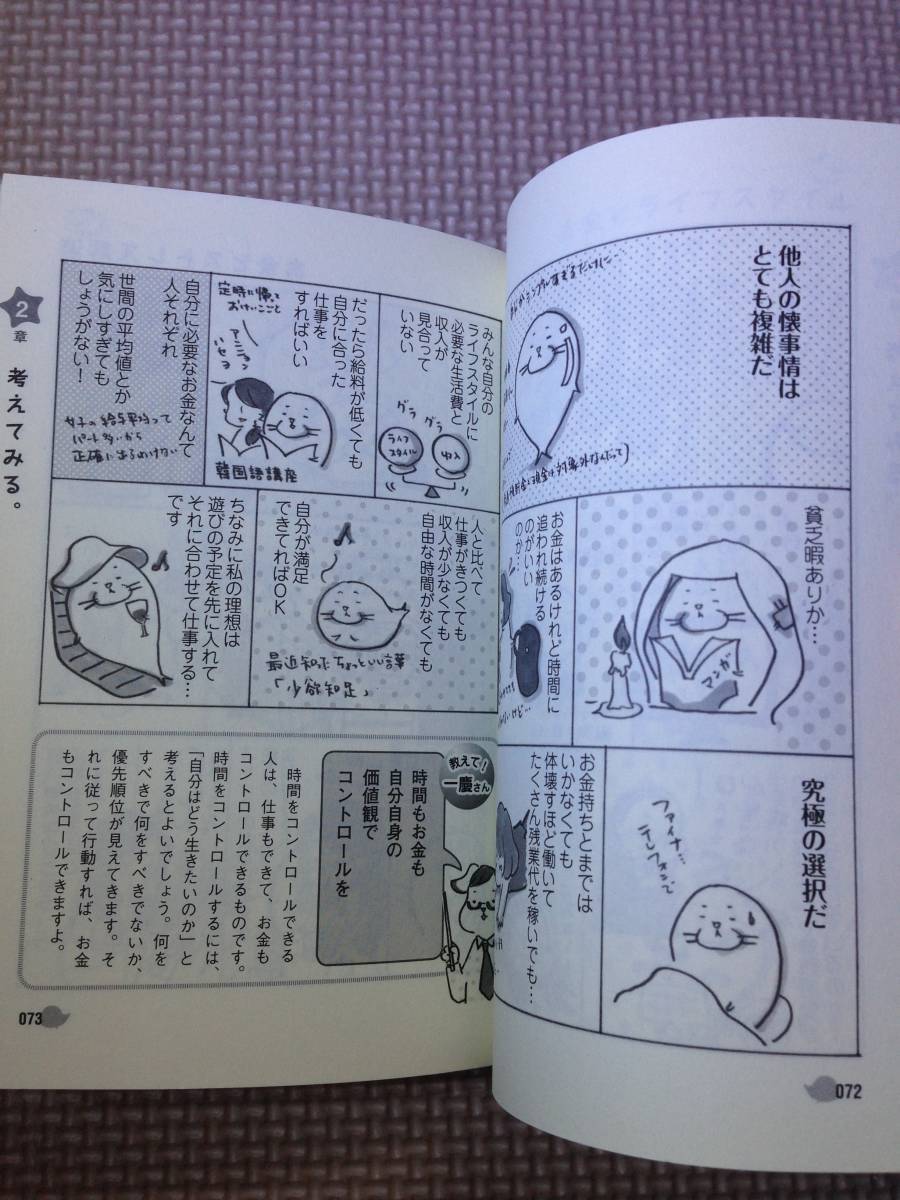 他人の懐事情は
とても複雑だ
貧乏暇ありか…
マンガ
お金はあるけれど時間に
追われ続ける
のがいい
のか…
究極の選択だ
ファイナ…
テレフォンで
お金持ちとまでは
いかなくても
体壊すほど働いて
たくさん残業代を稼いでも…
072
みんな自分の
ライフスタイルに
必要な生活費と
収入が
見合って
いない
グラ
グラ
ライフ
スタイル
収入
だったら給料が低くても
自分に合った
仕事を
すればいい
定時に帰って
おけいこごと
アニョン
ハセヨ
韓国語講座
自分に必要なお金なんて
人それぞれ
世間の平均値とか
気にしすぎても
しょうがない！
女子の給与平均って
パート多いから
正確に出るわけない
人と比べて
仕事がきつくても
収入が少なくても
自由な時間がなくても
自分が満足
できてればOK
最近知ったちょっといい言葉
「少欲知足」
ちなみに私の理想は
遊びの予定を先に入れて
それに合わせて仕事する…
です
教えて！
一慶さん
時間もお金も
自分自身の
価値観で
コントロールを
時間をコントロールできる
人は、仕事もできて、お金も
コントロールできるものです。
時間をコントロールするには、
「自分はどう生きたいのか」と
考えるとよいでしょう。何を
すべきで何をすべきでないか、
優先順位が見えてきます。そ
れに従って行動すれば、お金
もコントロールできますよ。
2
章
考えてみる。
073